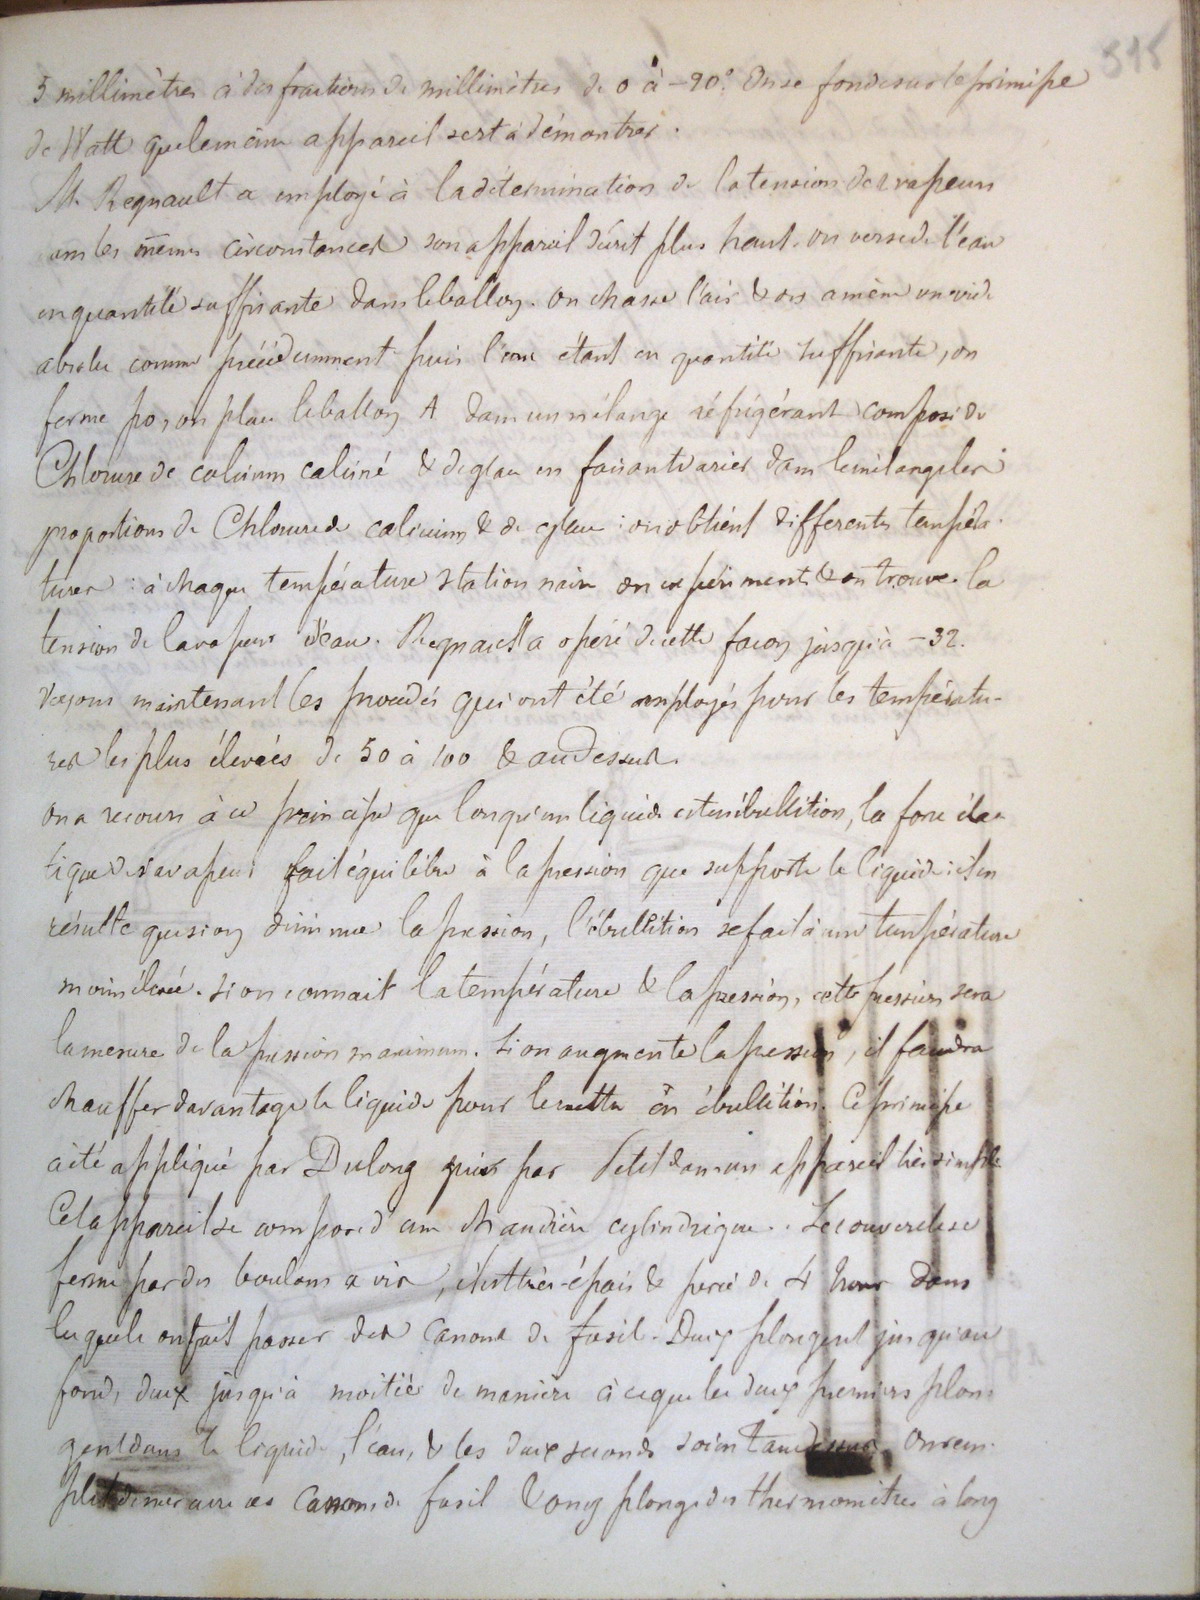 515
5 millimètres à des fractions de millimètres de 0 à -20°. On se fonde sur le principe
de Watt que le même appareil sert à démontrer.
M. Regnault a employé à la détermination de la tension des vapeurs
dans les mêmes circonstances son appareil décrit plus haut. on verse de l'eau
en quantité suffisante dans le ballon. on chasse l'air & on amène un vide
absolu comme précédemment puis l'eau étant en quantité suffisante, on
ferme po, on place le ballon A dans un mélange réfrigérant composé de
Chlorure de calcium calciné & de glace en faisant varier dans le mélange les
proportions de Chlorure de calcium & de glace : on obtient differentes tempéra-
tures : à chaque température stationnaire on expérimente & on trouve la
tension de la vapeur d'eau. Regnault a opéré de cette façon jusqu'à -32.
Voyons maintenant les procédés qui ont été employés pour les températu-
res les plus élevées de 50 à 100 & au dessus.
On a recours à ce principe que lorsqu'un liquide est en ébullition, la force élas
tique de sa vapeur fait équilibre à la pression que supporte le liquide : il en
résulte que si on diminue la pression, l'ébullition se fait à une température
moins élevée. Si on connait la température & la pression, cette pression sera
la mesure de la pression maximum. Si on augmente la pression, il faudra
chauffer davantage le liquide pour le mettre en ébullition. Ce principe
a été appliqué par Dulong puis par Petit dans un appareil très simple
Cet appareil se compose d'une chaudière cylindrique. Le couvercle se
ferme par des boulons a vis, il est très épais & percé de 4 trous dans
lesquels on fait passer des canons de fusil. Deux plongent jusqu'au
fond, deux jusqu'à moitié de manière à ce que les deux premiers plon-
gent dans le liquide, l'eau, & les deux seconds soient au dessus. On rem-
plit de mercure ces Canons de fusil & on y plonge des thermomètres à long